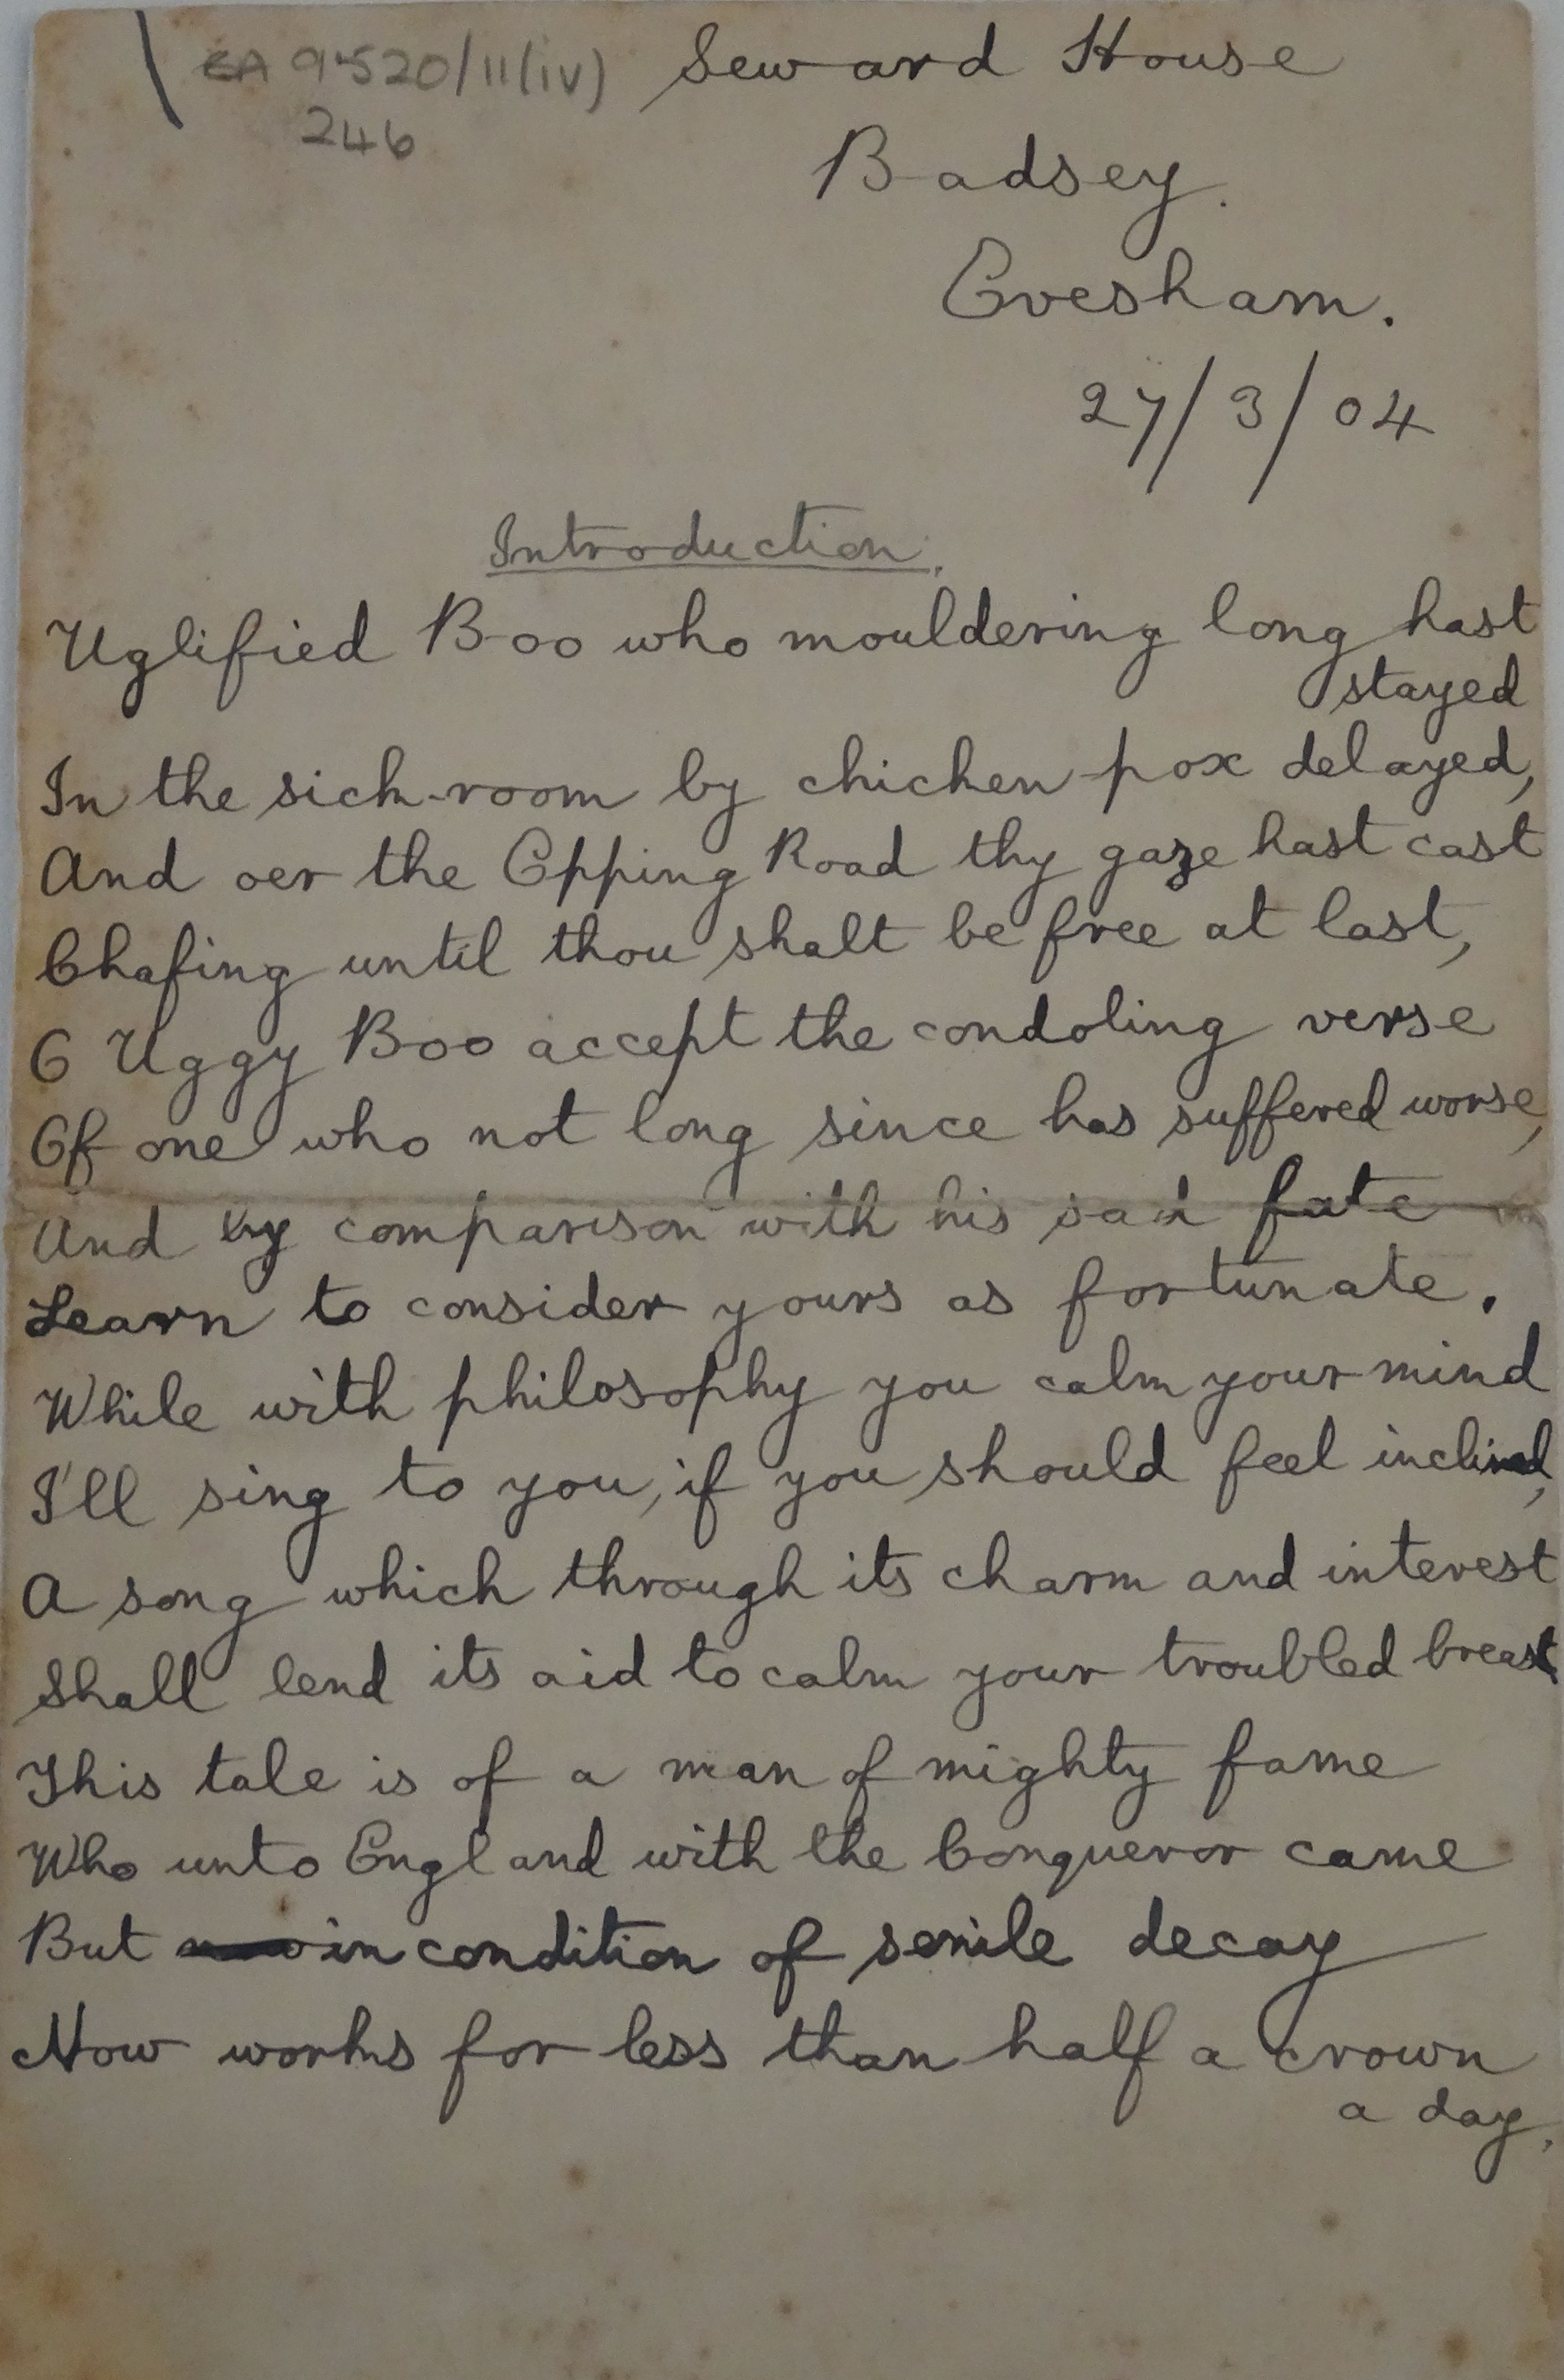 EA 9520/11(iv) Seward House
246
Badsey.
Evesham.
27/3/04
Introduction.
Uglified Boo who mouldering long hast
stayed
In the sick-room by chicken-pox delayed,
And oer the Epping Road thy gaze hast cast
Chafing until thou shalt be free at last,
O Uggy Boo accept the condoling verse
Of one who not long since has suffered worse,
And by comparison with his sad fate
Learn to consider yours as fortunate.
While with philosophy you calm your mind
I'll sing to you, if you should feel inclined,
A song which through its charm and interest
Shall lend its aid to calm your troubled breast
This tale is of a man of mighty fame
Who unto England with the Conqueror came
But in condition of senile decay
Now works for less than half a crown
a day.